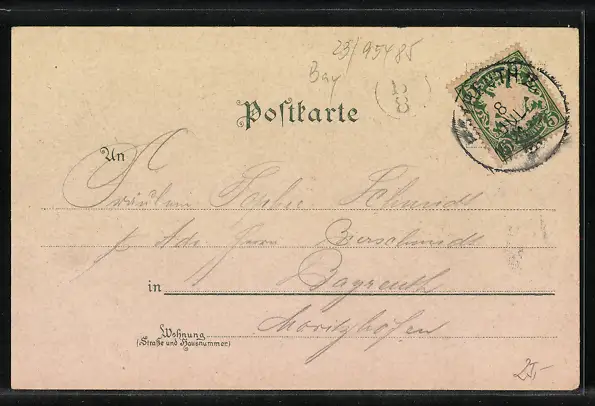 23/95485
Bay
Postkarte
An
Fräulein Sophie Schmidt
p. Adr. Herrn
in Bayreuth
Moritzhöfen
Wohnung
(Straße und Hausnummer)
8
5 5
25,-